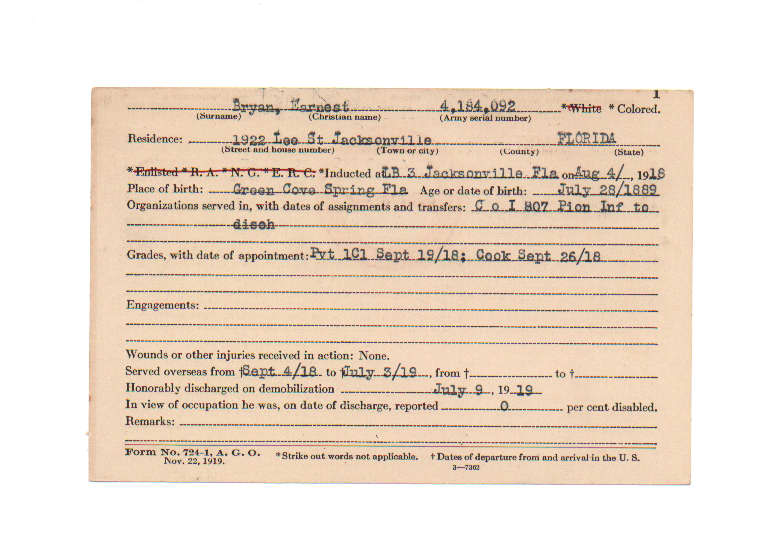 1
Bryan, Earnest 4,184,092 *White * Colored.
(Surname) (Christian name) (Army serial number)
Residence: 1922 Lee St Jacksonville FLORIDA
(Street and house number) (Town or city) (County) (State)
*Enlisted * R. A. * N. G. * E. R. C. *Inducted at LB 3 Jacksonville Fla on Aug 4/, 1918
Place of birth: Green Cove Spring Fla Age or date of birth: July 28/1889
Organizations served in, with dates of assignments and transfers: C o I 807 Pion Inf to
disch
Grades, with date of appointment: Pvt 1Cl Sept 19/18; Cook Sept 26/18
Engagements:
Wounds or other injuries received in action: None.
Served overseas from †Sept 4/18 to †July 3/19, from † to †
Honorably discharged on demobilization July 9, 1919
In view of occupation he was, on date of discharge, reported 0 per cent disabled.
Remarks:
Form No. 724-1, A. G. O. *Strike out words not applicable. †Dates of departure from and arrival in the U. S.
Nov. 22, 1919. 3—7362